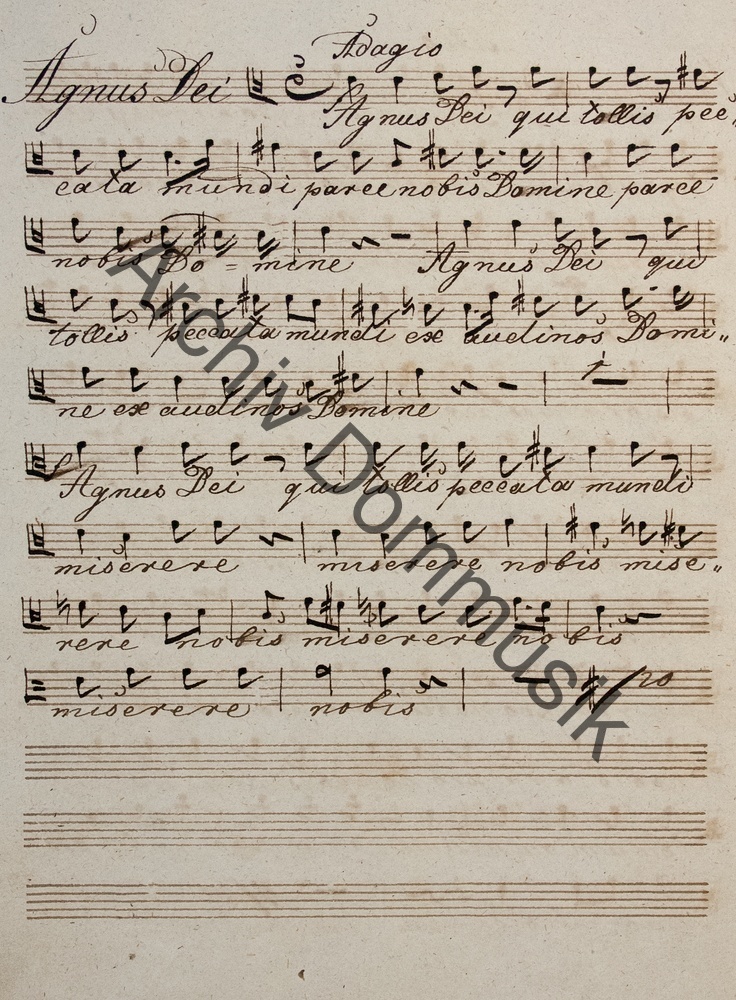 Adagio
Agnus Dei
Agnus Dei qui tollis pec„
cata mundi parce nobis Domine parce
nobis Do = mine Agnus Dei qui
tollis peccata mundi ex audinos Domi„
ne ex audinos Domine
1
Agnus Dei qui tollis peccata mundi
miserere miserere nobis mise„
rere nobis miserere nobis
miserere nobis
Archiv Dommusik